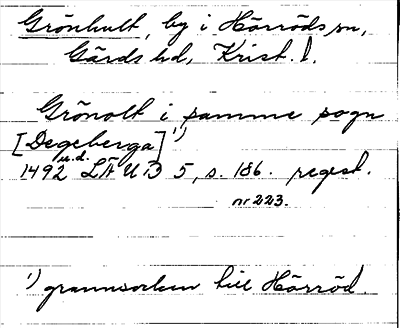 Grönhult, by i Hörröds sn,
Gärds hd, Krist. l.
Grönolt i samme sogn
[Degeberga] 1)
1492 u.d. LÄUB 5, s. 186. regest.
nr 223.
1) grannsocken till Hörröd.